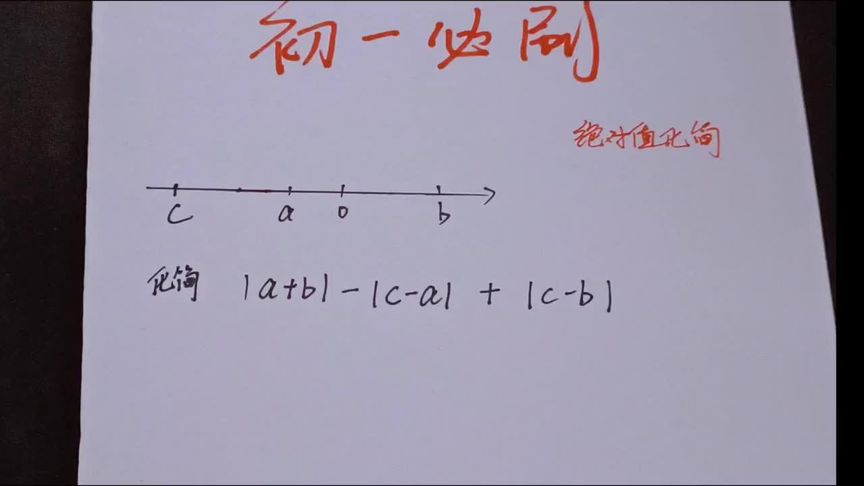 初一必刷
绝对值化简
c a 0 b
化简 |a+b| - |c-a| + |c-b|